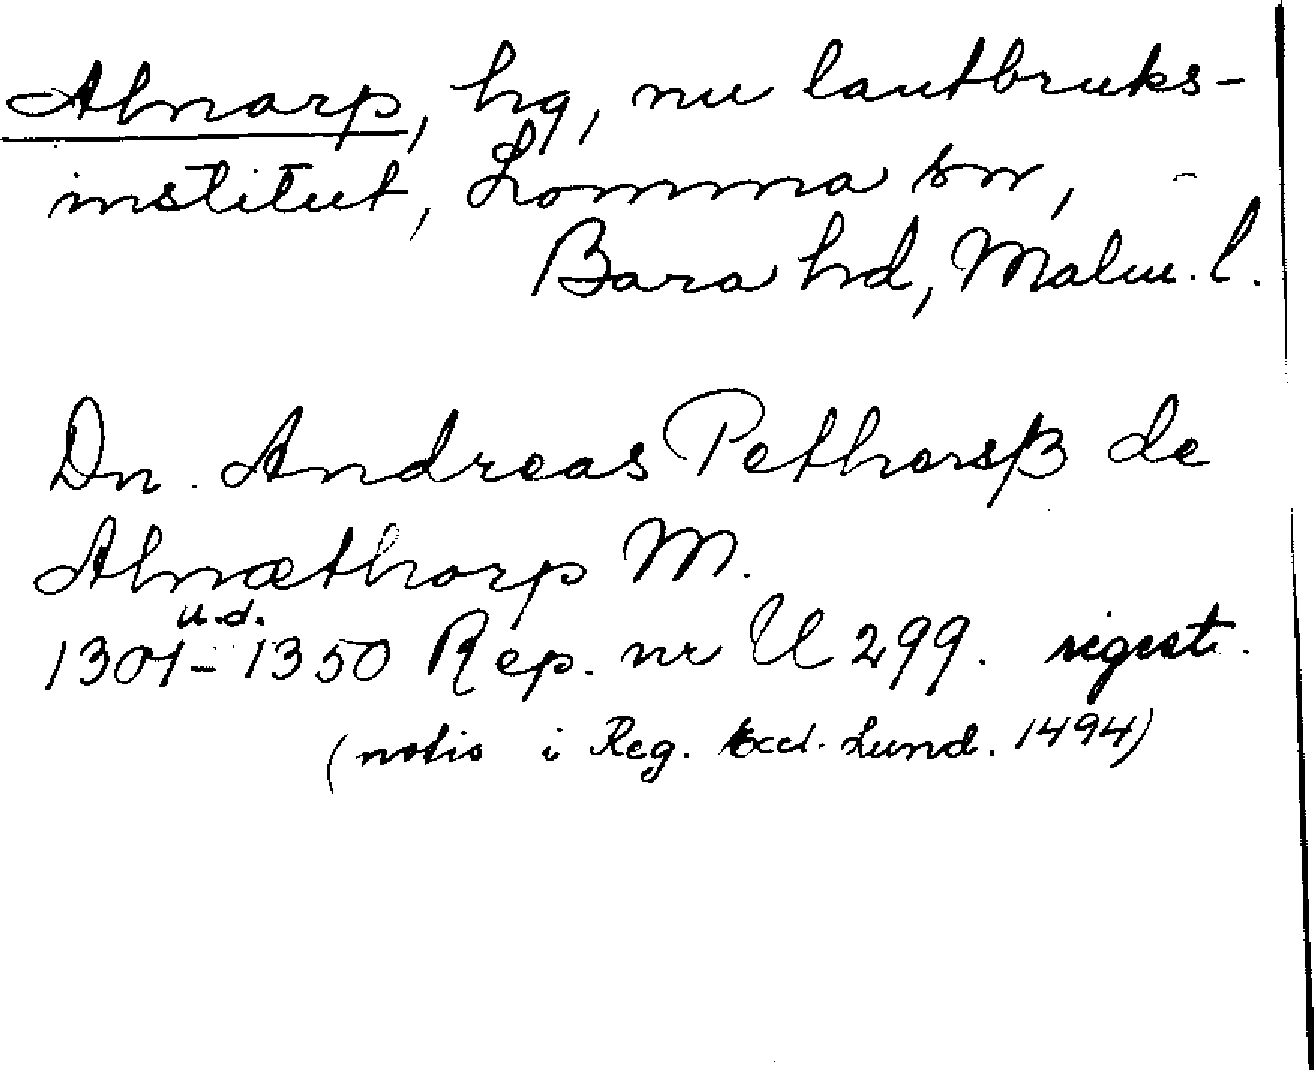 Alnarp, hg, nu lantbruks-
institut, Lomma sn,
Bara hd, Malm. l.
Dn. Andreas Pethersß de
Alnæthorp M.
u.d.
1301-1350 Rep. nr U 299. regest.
(notis i Reg. Eccl. Lund. 1494)